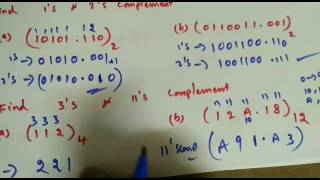 Find 1's & 2's Complement
(a) (10101.110)₂
1's → 01010.001
2's → (01010.010)
(b) (0110011.001)₂
1's → 1001100.110
2's → 1001100.111
Find 3's & 11's Complement
3 3 3
(a) (112)₄
→ 221
(b) (12A.18)₁₂
11's comp (A91.A3)